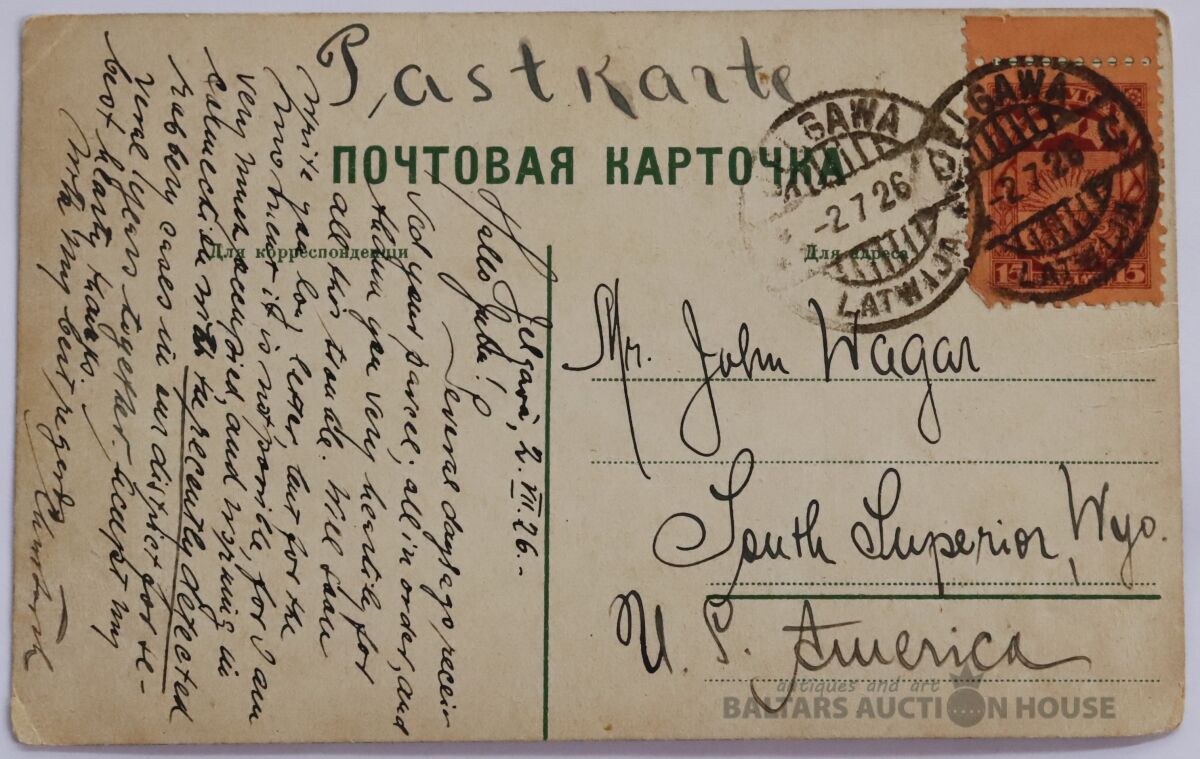 Pastkarte
ПОЧТОВАЯ КАРТОЧКА
Для корреспонденціи
Для адреса
GAWA
-2 7 26
LATWIJA
JELGAWA
-2 7 26
LATWIJA
15 15
Jelgavā, 2. VII. 26.-
Hello Juda!
Several days ago receiv
ved your parcel; all in order, and
thank you very heartily for
all this trouble. Will soon
write you lou, letter, but for the
moment it is not possible, for I am
very much occupied, and working in
connection with the recently detected
robbery cases in our district for se-
veral years together. Accept my
best hearty thanks.
With my best regards
Mr. John Wagar
South Superior, Wyo.
U. S. America
antiques and art
BALTARS AUCTION HOUSE